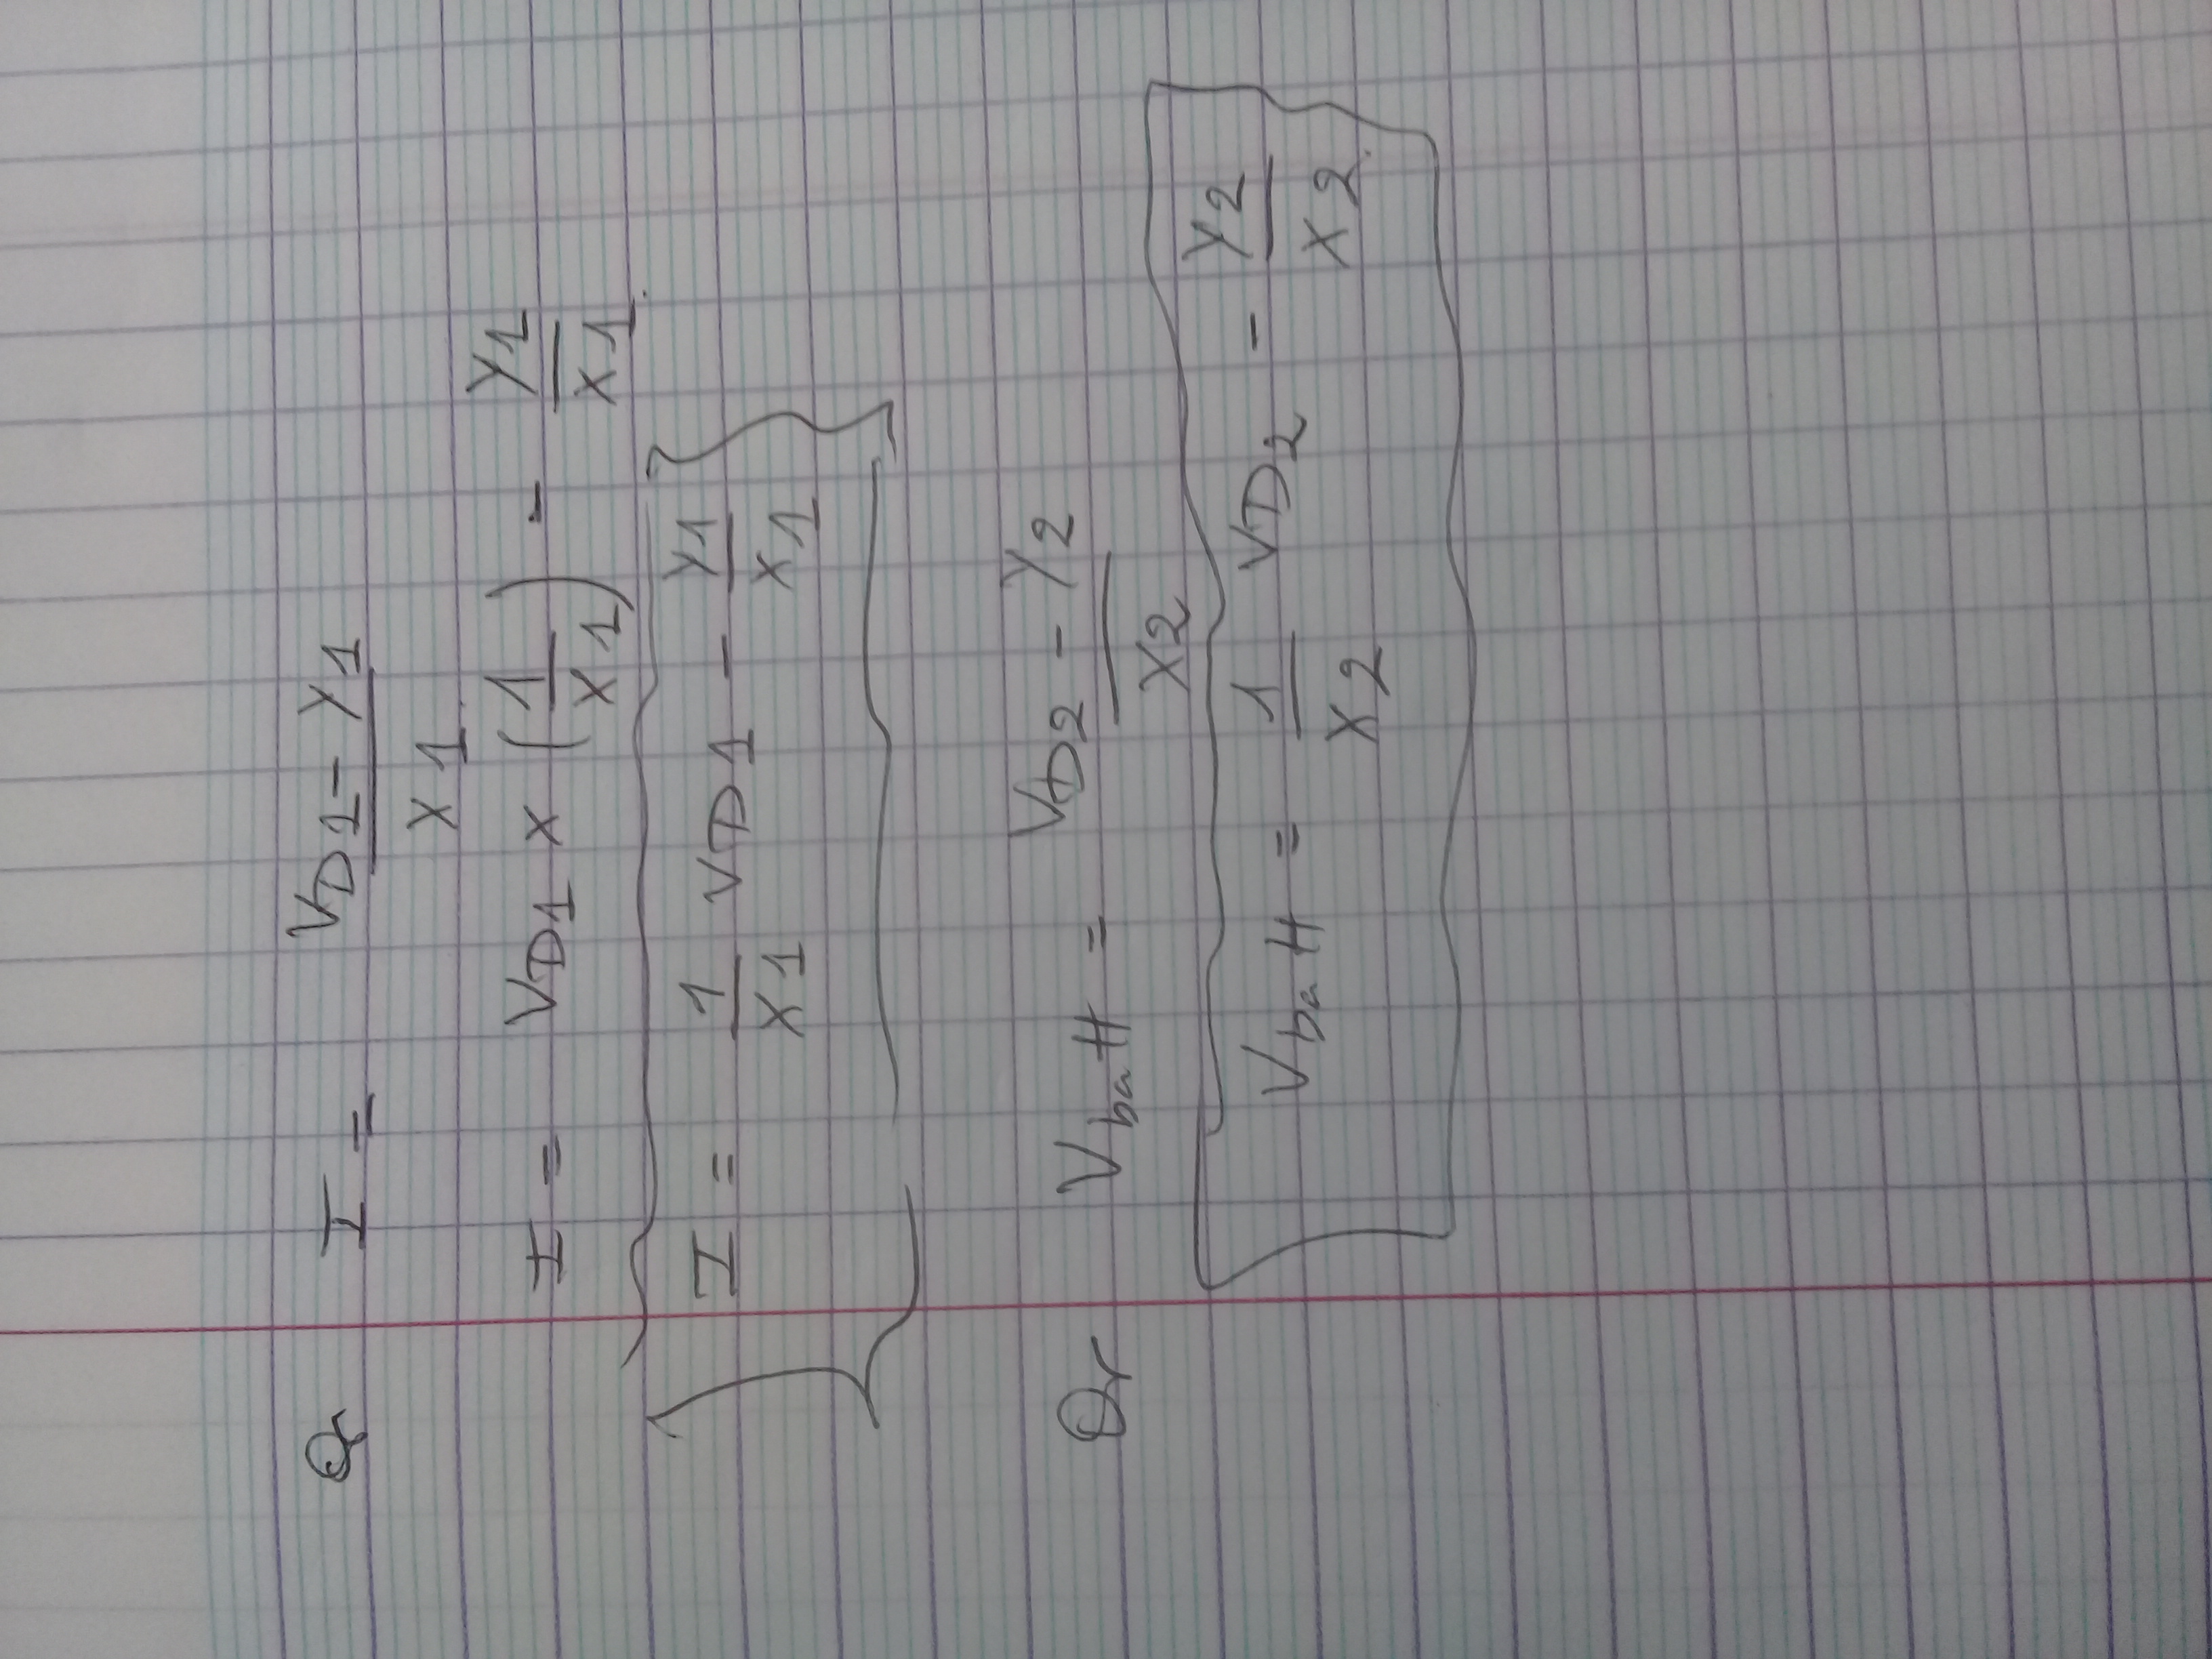 Or I = (VD1 - Y1) / X1
I = VD1 x (1/X1) - Y1/X1
I = 1/X1 VD1 - Y1/X1
Or Vbatt = (VD2 - Y2) / X2
Vbatt = 1/X2 VD2 - Y2/X2